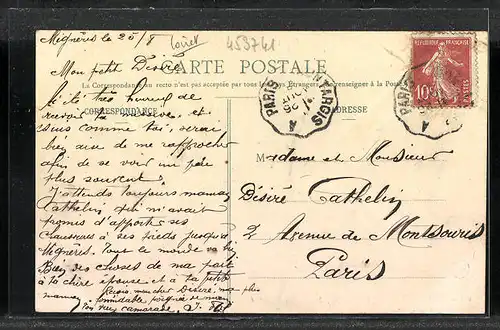 Mignères le 25/8 Loiret
453741
Mon petit Désiré
CARTE POSTALE
La Correspondance au recto n'est pas acceptée par tous les Pays Étrangers. Se renseigner à la Poste
CORRESPONDANCE
ADRESSE
RÉPUBLIQUE FRANÇAISE
10
PARIS A MONTARGIS
PARIS A
J'ai été très heureux de
recevoir ta et
suis comme toi, serai
bien aise de me rapprocher
afin de se voir un peu
plus souvent.
J'attends toujours maman
Cathelin qui m'avait
promis d'apporter ses
chaussures à ses pieds jusqu'à
Mignères. Tout le monde va bien
Bien des choses de ma part
à ta chère épouse et à ta petite
maman
formidable poignée de main
ton vieux camarade
Madame et Monsieur
Désiré Cathelin
2 Avenue de Montsouris
Paris